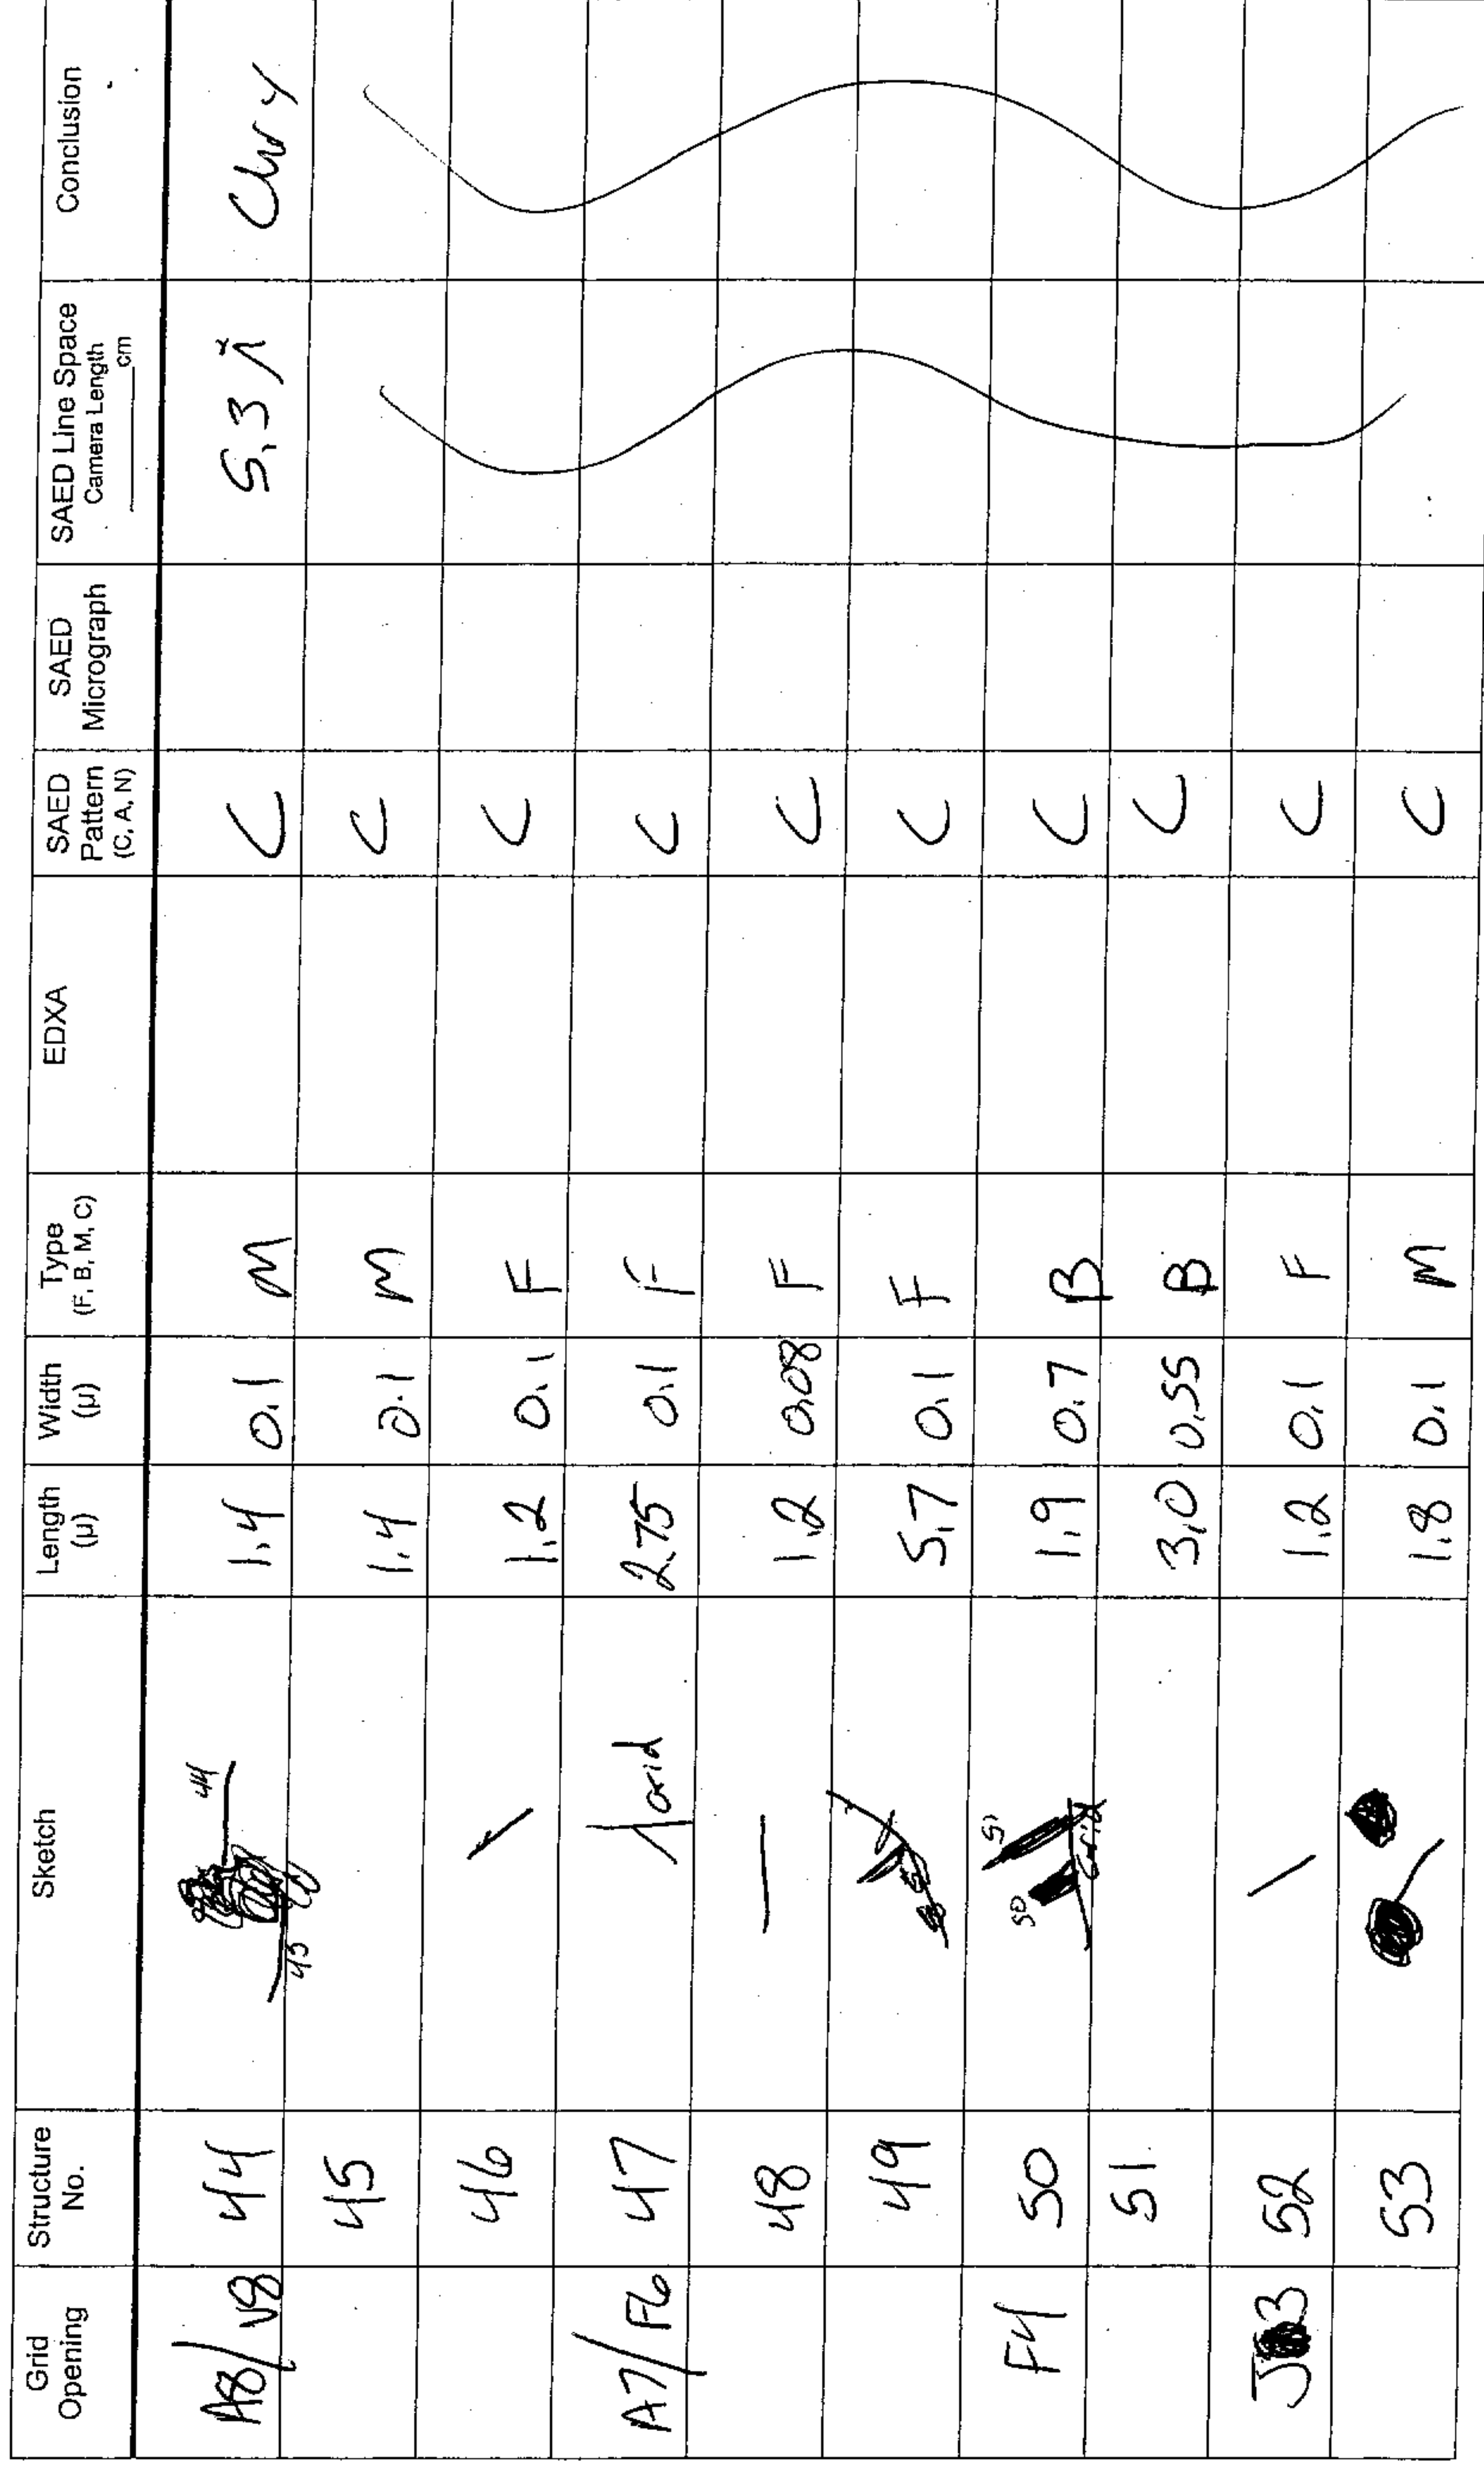 Grid Opening Structure No. Sketch Length (µ) Width (µ) Type (F, B, M, C) EDXA SAED Pattern (C, A, N) SAED Micrograph SAED Line Space Camera Length ____ cm Conclusion
A8/V8 44 44 45 1.4 0.1 M C 5.3 Å Chry
45 1.4 0.1 M C
46 1.2 0.1 F C
A7/F6 47 grid 2.75 0.1 F C
48 1.2 0.08 F C
49 5.7 0.1 F C
F4 50 50 51 Grid 1.9 0.7 B C
51 3.0 0.55 B C
J 3 52 1.2 0.1 F C
53 1.8 0.1 M C